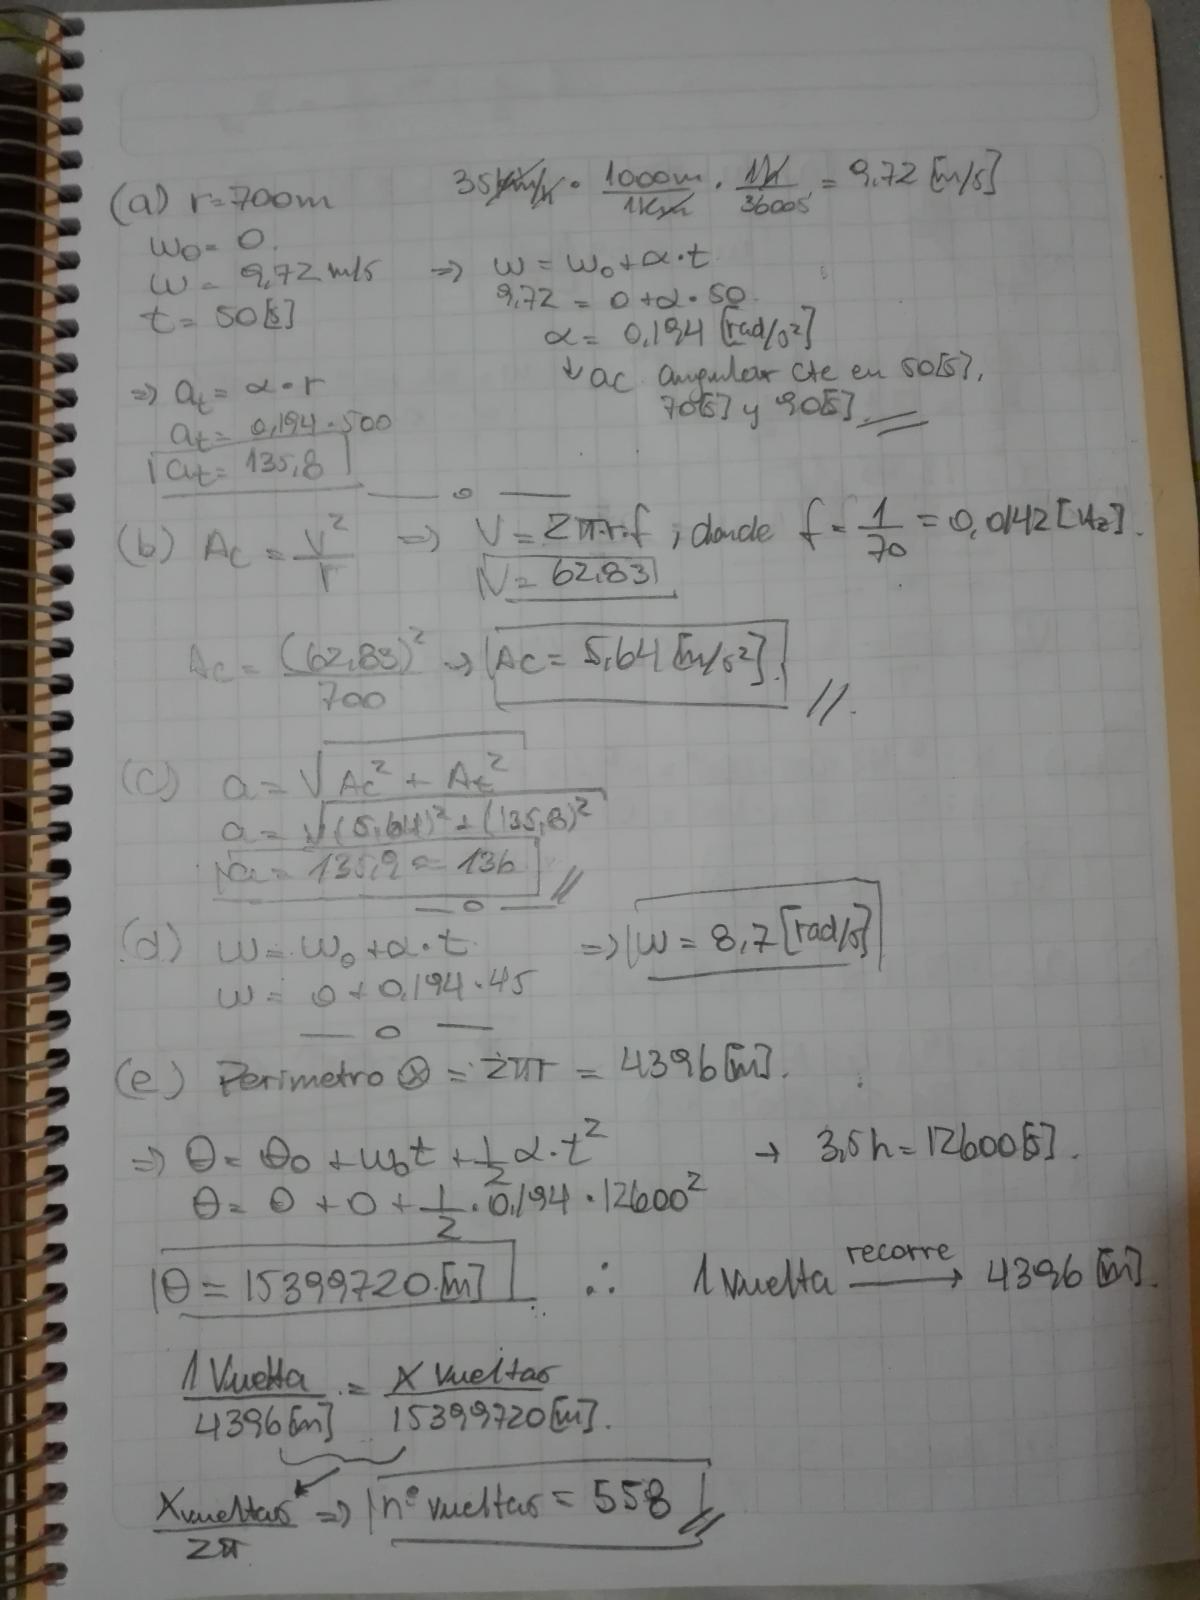 (a) r=700m 35km/h · 1000m/1km · 1h/3600s = 9,72 [m/s]
ω₀= 0.
ω= 9,72 m/s ⇒ ω = ω₀+α·t
t= 50[s] 9,72 = 0+α·50
α= 0,194 [rad/s²]
↓ ac angular cte en 50[s],
70[s] y 90[s].
⇒ at= α·r
at= 0,194·500
at= 135,8
(b) Ac = v²/r ⇒ V= 2π·r·f ; donde f= 1/70 = 0,0142 [Hz].
V= 62,83
Ac= (62,83)²/700 → Ac= 5,64 [m/s²].
(c) a= √Ac² + At²
a= √(5,64)²+(135,8)²
a= 135,9 ≈ 136
(d) ω= ω₀+α·t ⇒ ω= 8,7 [rad/s]
ω= 0+0,194·45
(e) Perimetro ⊗ = 2πr = 4396[m].
⇒ θ= θ₀+ω₀t+1/2 α·t² → 3,5h=12600[s].
θ= 0 +0+1/2·0,194·12600²
θ= 15399720.[m] ∴ 1 Vuelta recorre→ 4396 [m].
1 Vuelta/4396[m] = X vueltas/15399720[m].
Xvueltas/2π ⇒ n° vueltas = 558